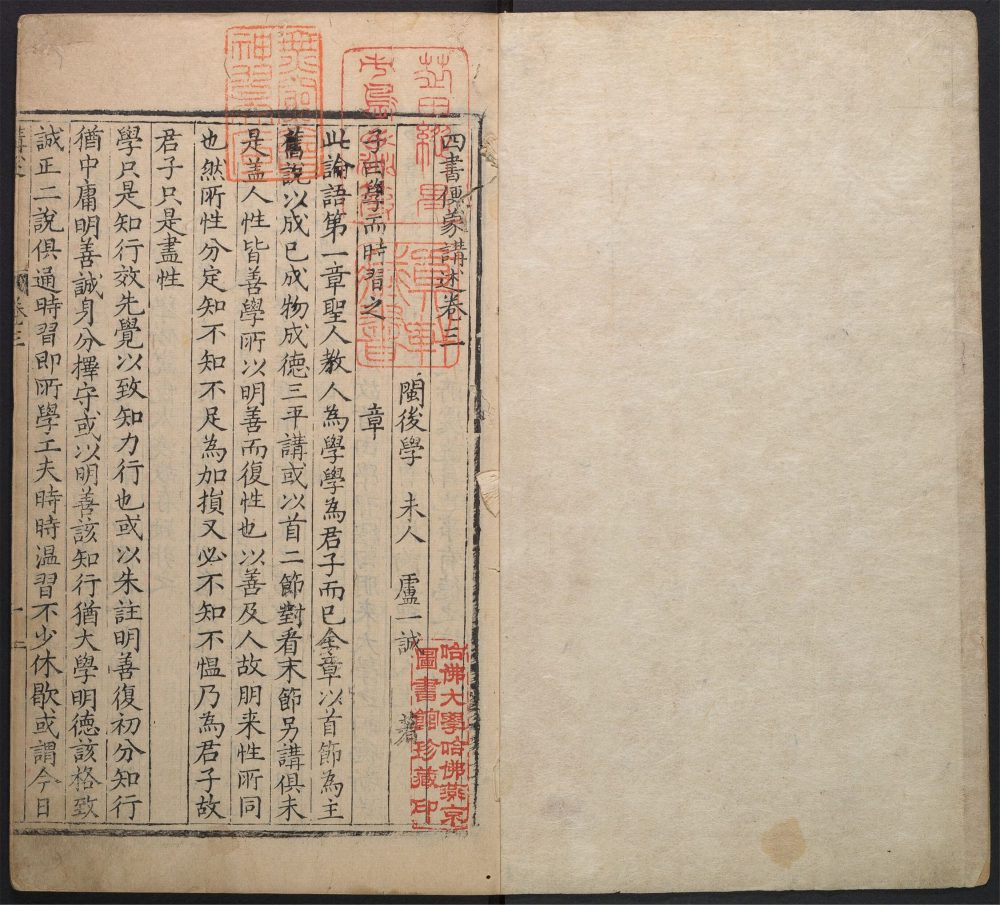 四書便蒙講述卷三
閩後學 未人 盧一誠 著
子曰學而時習之 章
此論語第一章聖人教人為學學為君子而已全章以首節為主
舊說以成已成物成德三平講或以首二節對看末節另講俱未
是盖人性皆善學所以明善而復性也以善及人故朋来性所同
也然所性分定知不知不足為加損又必不知不愠乃為君子故
君子只是盡性
學只是知行效先覺以致知力行也或以朱註明善復初分知行
猶中庸明善誠身分擇守或以明善該知行猶大學明德該格致
誠正二說俱通時習即所學工夫時時温習不少休歇或謂今日
講述
卷之三
一
哈佛大學哈佛燕京
圖書館珍藏印